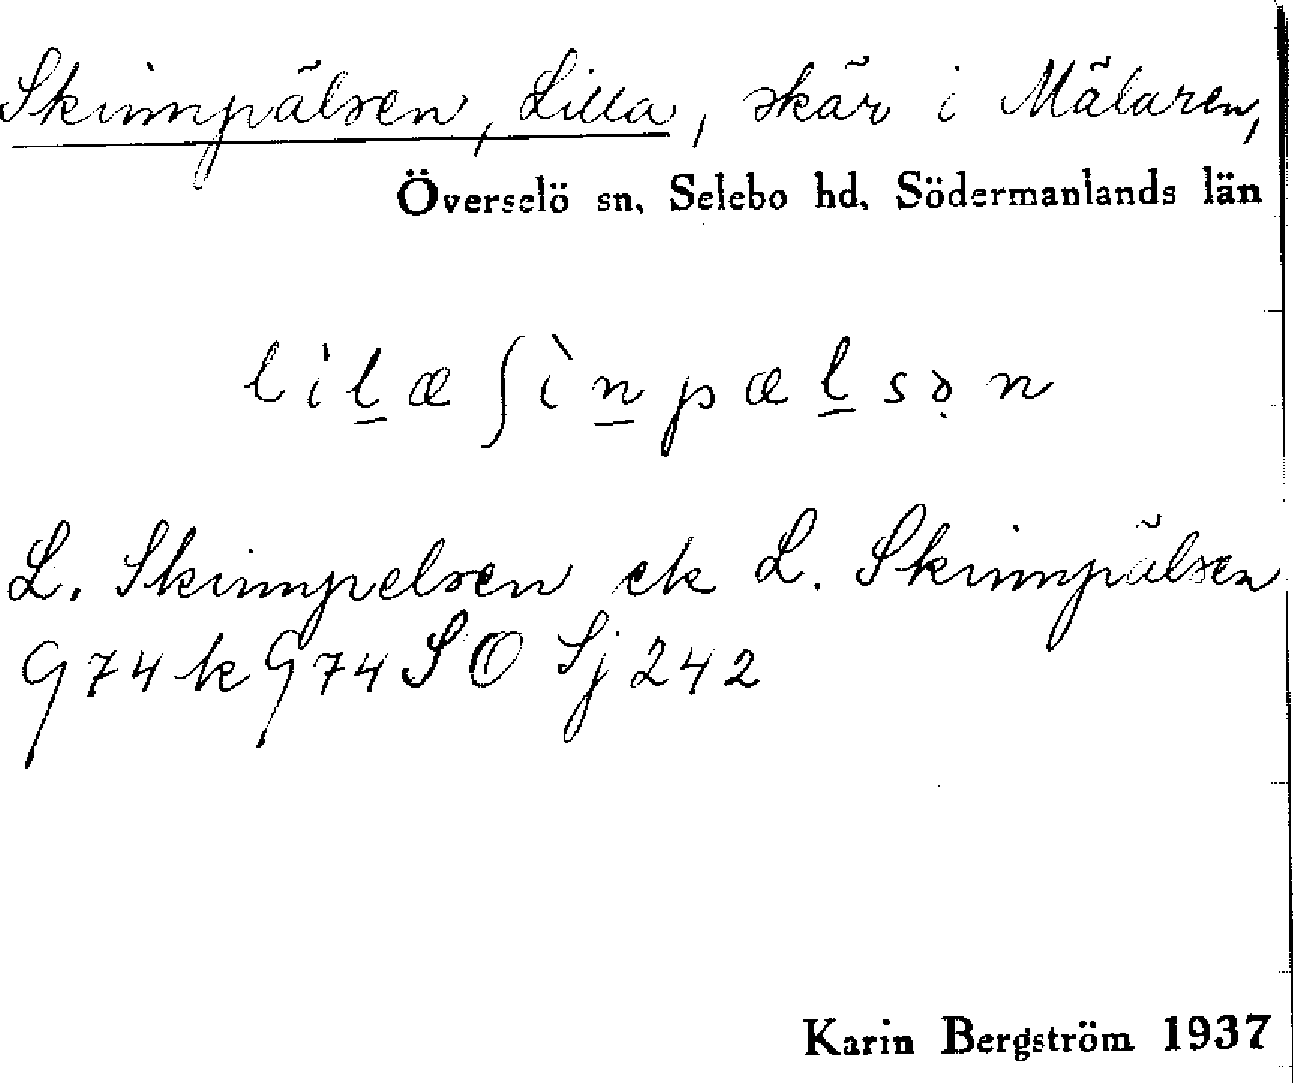 Skinnpälsen, Lilla, skär i Mälaren,
Överselö sn, Selebo hd, Södermanlands län
lil̠æ ʃìn̠pæl̠sə̣n
L. Skinnpelsen ek L. Skinnpälsen
G74 k G74 SO Sj 242
Karin Bergström 1937